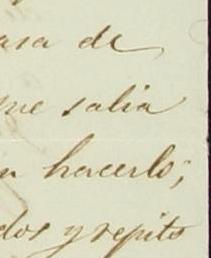 asa de
me salia
n hacerlo;
dos y repito